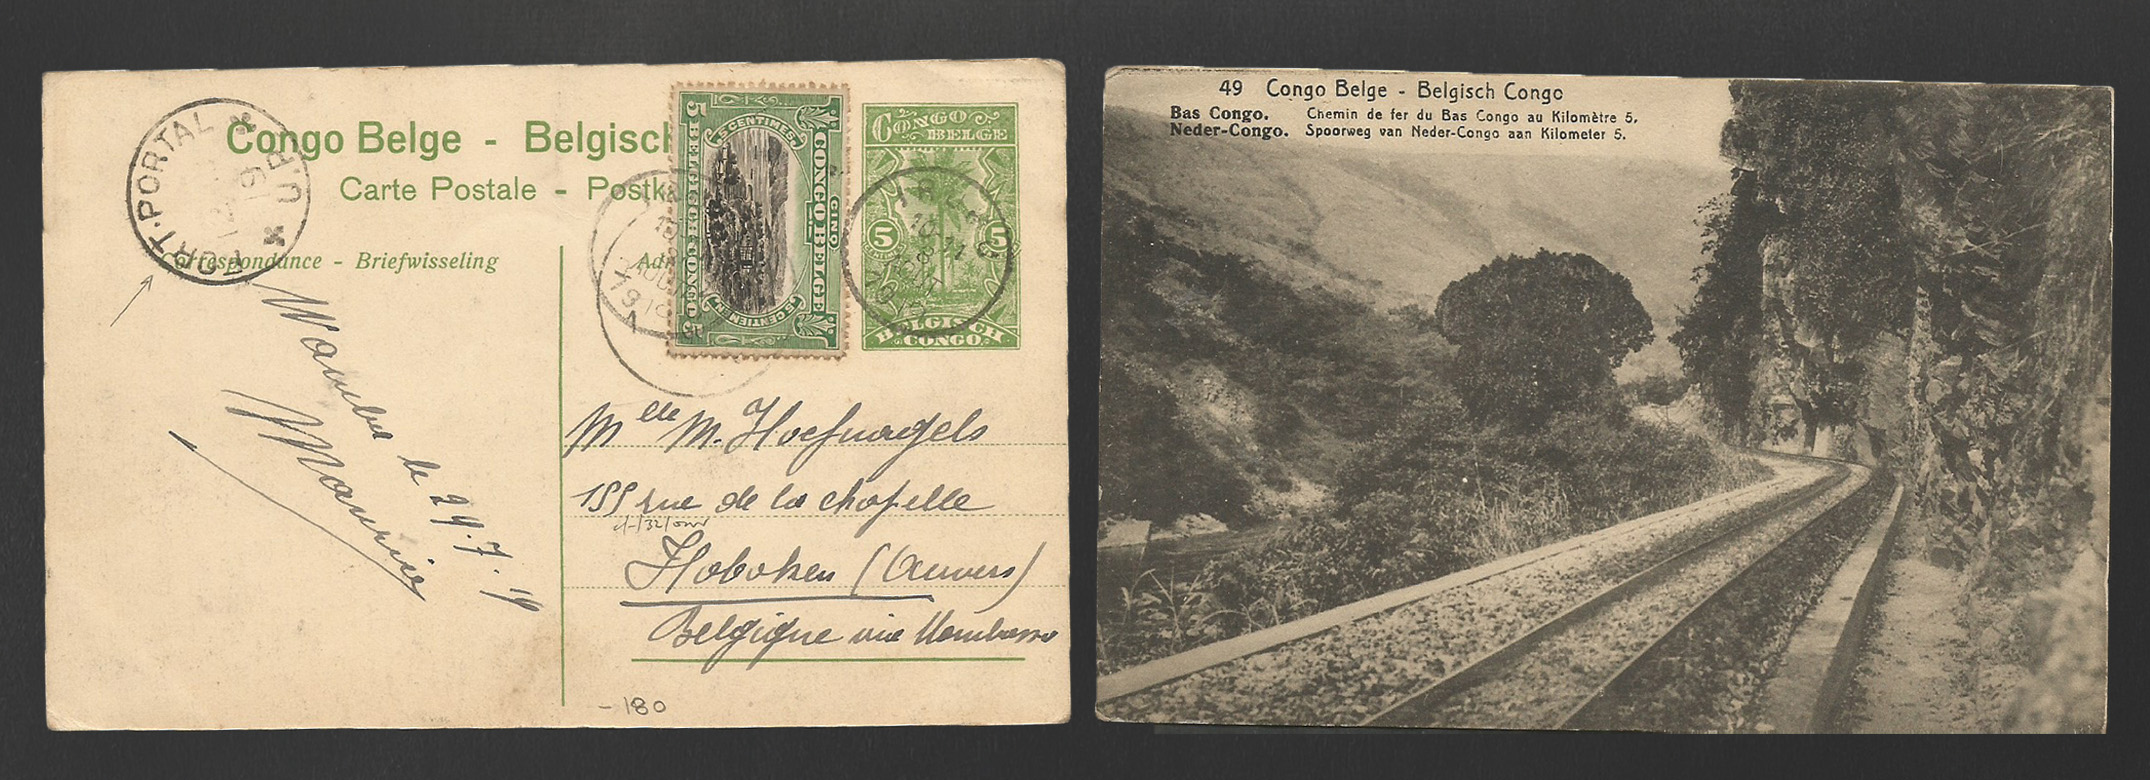 Congo Belge - Belgisch
Carte Postale - Postk
Correspondance - Briefwisseling
FORT-PORTAL
U.P.
5 CENTIMES
CONGO BELGE
BELGISCH CONGO
CINQ
CONGO
BELGE
5 5
BELGISCH
CONGO
le 24.7.19
Maurice
Mlle M. Hoefnagels
155 rue de la chapelle
Hoboken (Anvers)
Belgique via Mombassa
- 180
49 Congo Belge - Belgisch Congo
Bas Congo. Chemin de fer du Bas Congo au Kilomètre 5.
Neder-Congo. Spoorweg van Neder-Congo aan Kilometer 5.